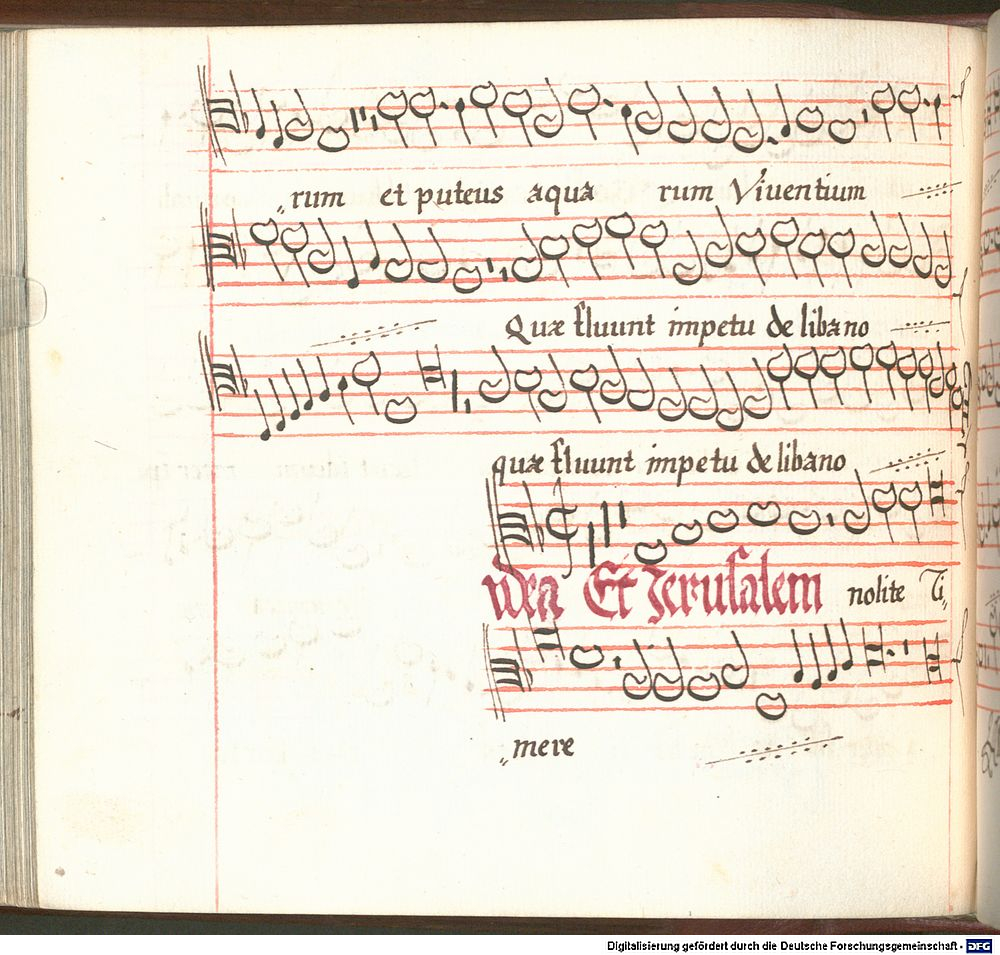 rum et puteus aqua rum Viventium
Quæ fluunt impetu de libano
quæ fluunt impetu de libano
udea Et Jerusalem nolite Ti„
„mere
Digitalisierung gefördert durch die Deutsche Forschungsgemeinschaft - DFG